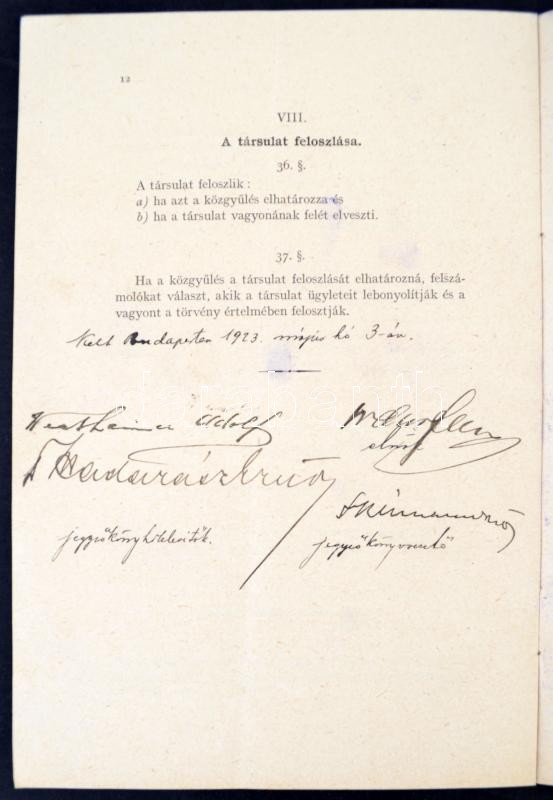 12
VIII.
A társulat feloszlása.
36. §.
A társulat feloszlik :
a) ha azt a közgyűlés elhatározza és
b) ha a társulat vagyonának felét elveszti.
37. §.
Ha a közgyűlés a társulat feloszlását elhatározná, felszá-
molókat választ, akik a társulat ügyleteit lebonyolítják és a
vagyont a törvény értelmében felosztják.
Kelt Budapesten 1923. május hó 3-án.
Wertheimer Adolf
elnök
Madarász Ernő
jegyzőkönyvhitelesítők.
jegyzőkönyvvezető